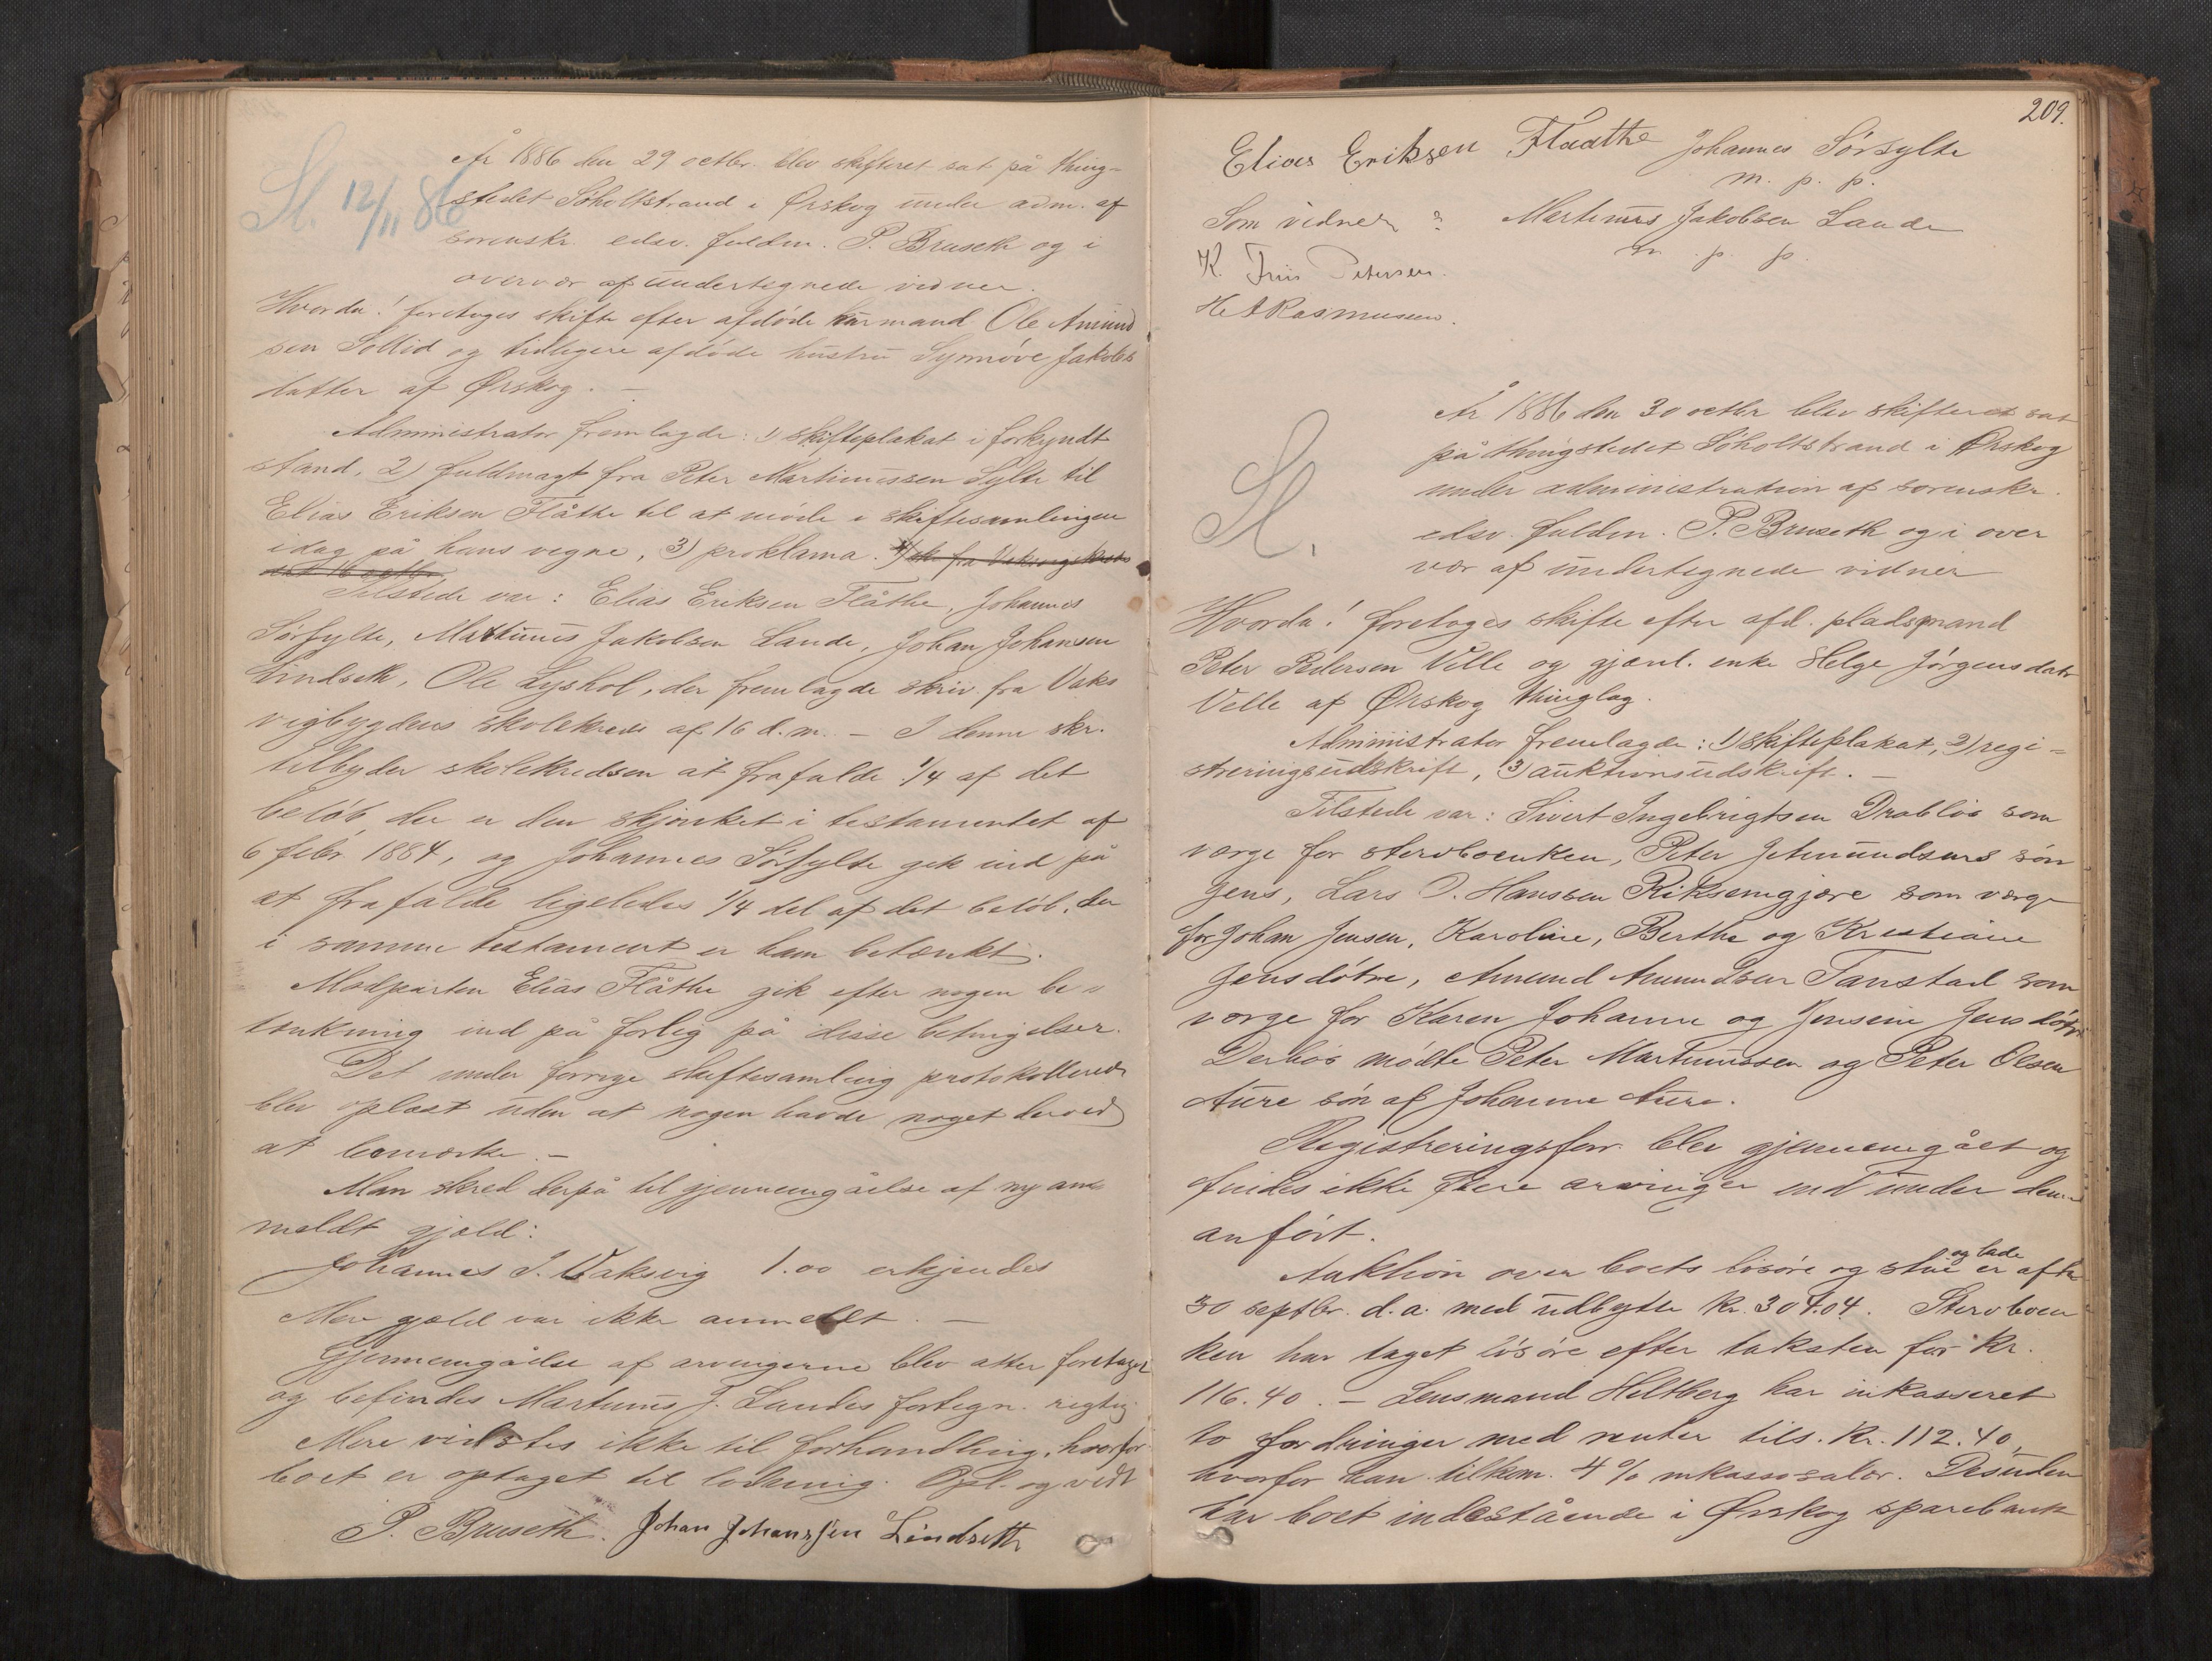 År 1886 den 29 octbr. blev skifteret sat på thing-
stedet Søholtstrand i Ørskog under adm. af
sorenskr. edsv. fuldm. P. Bruseth og i
overvær af undertegnede vidner.
Sl. 12/11 86
Hvorda! foretoges skifte efter afdøde kårmand Ole Amund
sen Sollid og tidligere afdøde hustru Synnöve Jakobs
datter af Ørskog. –
Administrator fremlagde: 1) skifteplakat i forkyndt
stand, 2) fuldmagt fra Peter Martinussen Sylte til
Elias Eriksen Flåthe til at möde i skiftesamlingen
idag på hans vegne, 3) proklama. 4) skr. fra Vaksvigkreds
dat 16 octbr.
Tilstede var: Elias Eriksen Flåthe, Johannes
Sörsylte, Martinus Jakobsen Lande, Johan Johansen
Lindseth, Ole Lyshol, der fremlagde skriv. fra Vaks
vigbygdens skolekreds af 16 d.m. – I denne skr.
tilbyder skolekredsen at frafalde 1/4 af det
belöb, der er den skjænket i testamentet af
6 febr. 1884, og Johannes Sörsylte gik ind på
at frafalde ligeledes 1/4 del af det belöb, der
i samme testament er ham betænkt.
Modparten Elias Flåthe gik efter nogen be
tænkning ind på forlig på disse betingelser.
Det under forrige skiftesamling protokollerede
blev oplæst uden at nogen havde noget derved
at bemærke. –
Man skred derpå til gjennemgåelse af ny an
meldt gjæld:
Johannes J. Vaksvig 1.00 erkjendes
Mere gjæld var ikke anmeldt. –
Gjennemgåelse af arvingerne blev atter foretaget
og befindes Martinus J. Landes fortegn. rigtig.
Mere vidstes ikke til forhandling, hvorfor
boet er optaget til lodning. Opl. og vedt
P. Bruseth. Johan Johanssen Lindseth
209.
Elias Eriksen Flaathe Johannes Sörsylte
m. p. p.
Som vidner: Martinus Jakobsen Lande
m. p. p.
K. Friis Petersen.
H A Rasmussen.
År 1886 den 30 octbr blev skifteret sat
på thingstedet Söholtstrand i Ørskog
under administration af sorenskr.
edsv. fuldm. P. Bruseth og i over
vær af undertegnede vidner
Sl.
Hvorda! foretoges skifte efter afd. pladsmand
Peter Pedersen Velle og gjenl. enke Helge Jörgensdatr
Velle af Ørskog thinglag.
Administrator fremlagde: 1) skifteplakat, 2) regi-
streringsudskrift, 3) auktionsudskrift. –
Tilstede var: Sivert Ingebrigtsen Drablös som
værge for stervboenken, Peter Jetmundsens sön
Jens, Lars O. Hanssen Riksemgjære som værge
for Johan Jensen, Karoline, Berthe og Kristiane
Jensdötre, Amund Amundsen Tanstad som
værge for Karen Johanne og Jensine Jensdötre
Derhos mödte Peter Martinussen og Peter Olsen
Aure sön af Johanne Aure.
Registreringsforr. blev gjennemgået og
findes ikke flere arvinger end under denne
anfört.
Auktion over boets lösöre og stue og lade er afh.
30 septbr. d.a. med udbytte kr. 304.04. Stervboen
ken har taget lösöre efter taksten for kr.
116.40. – Lensmand Heltberg har inkasseret
to fordringer med renter tils. kr. 112.40,
hvorfor han tilkom. 4 % inkassosalær. Desuden
har boet indestående i Ørskog sparebank